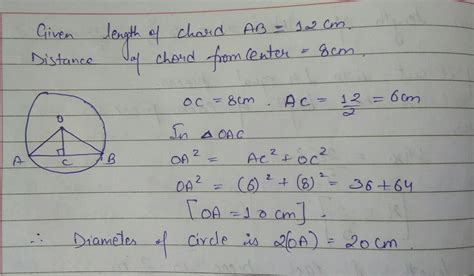 Given length of chord AB = 12 cm.
Distance of chord from center = 8cm.
OC = 8cm . AC = 12/2 = 6cm
In △OAC
OA² = AC² + OC²
OA² = (6)² + (8)² = 36 + 64
[OA = 10 cm] .
∴ Diameter of circle is 2(OA) = 20 cm.
O
A C B